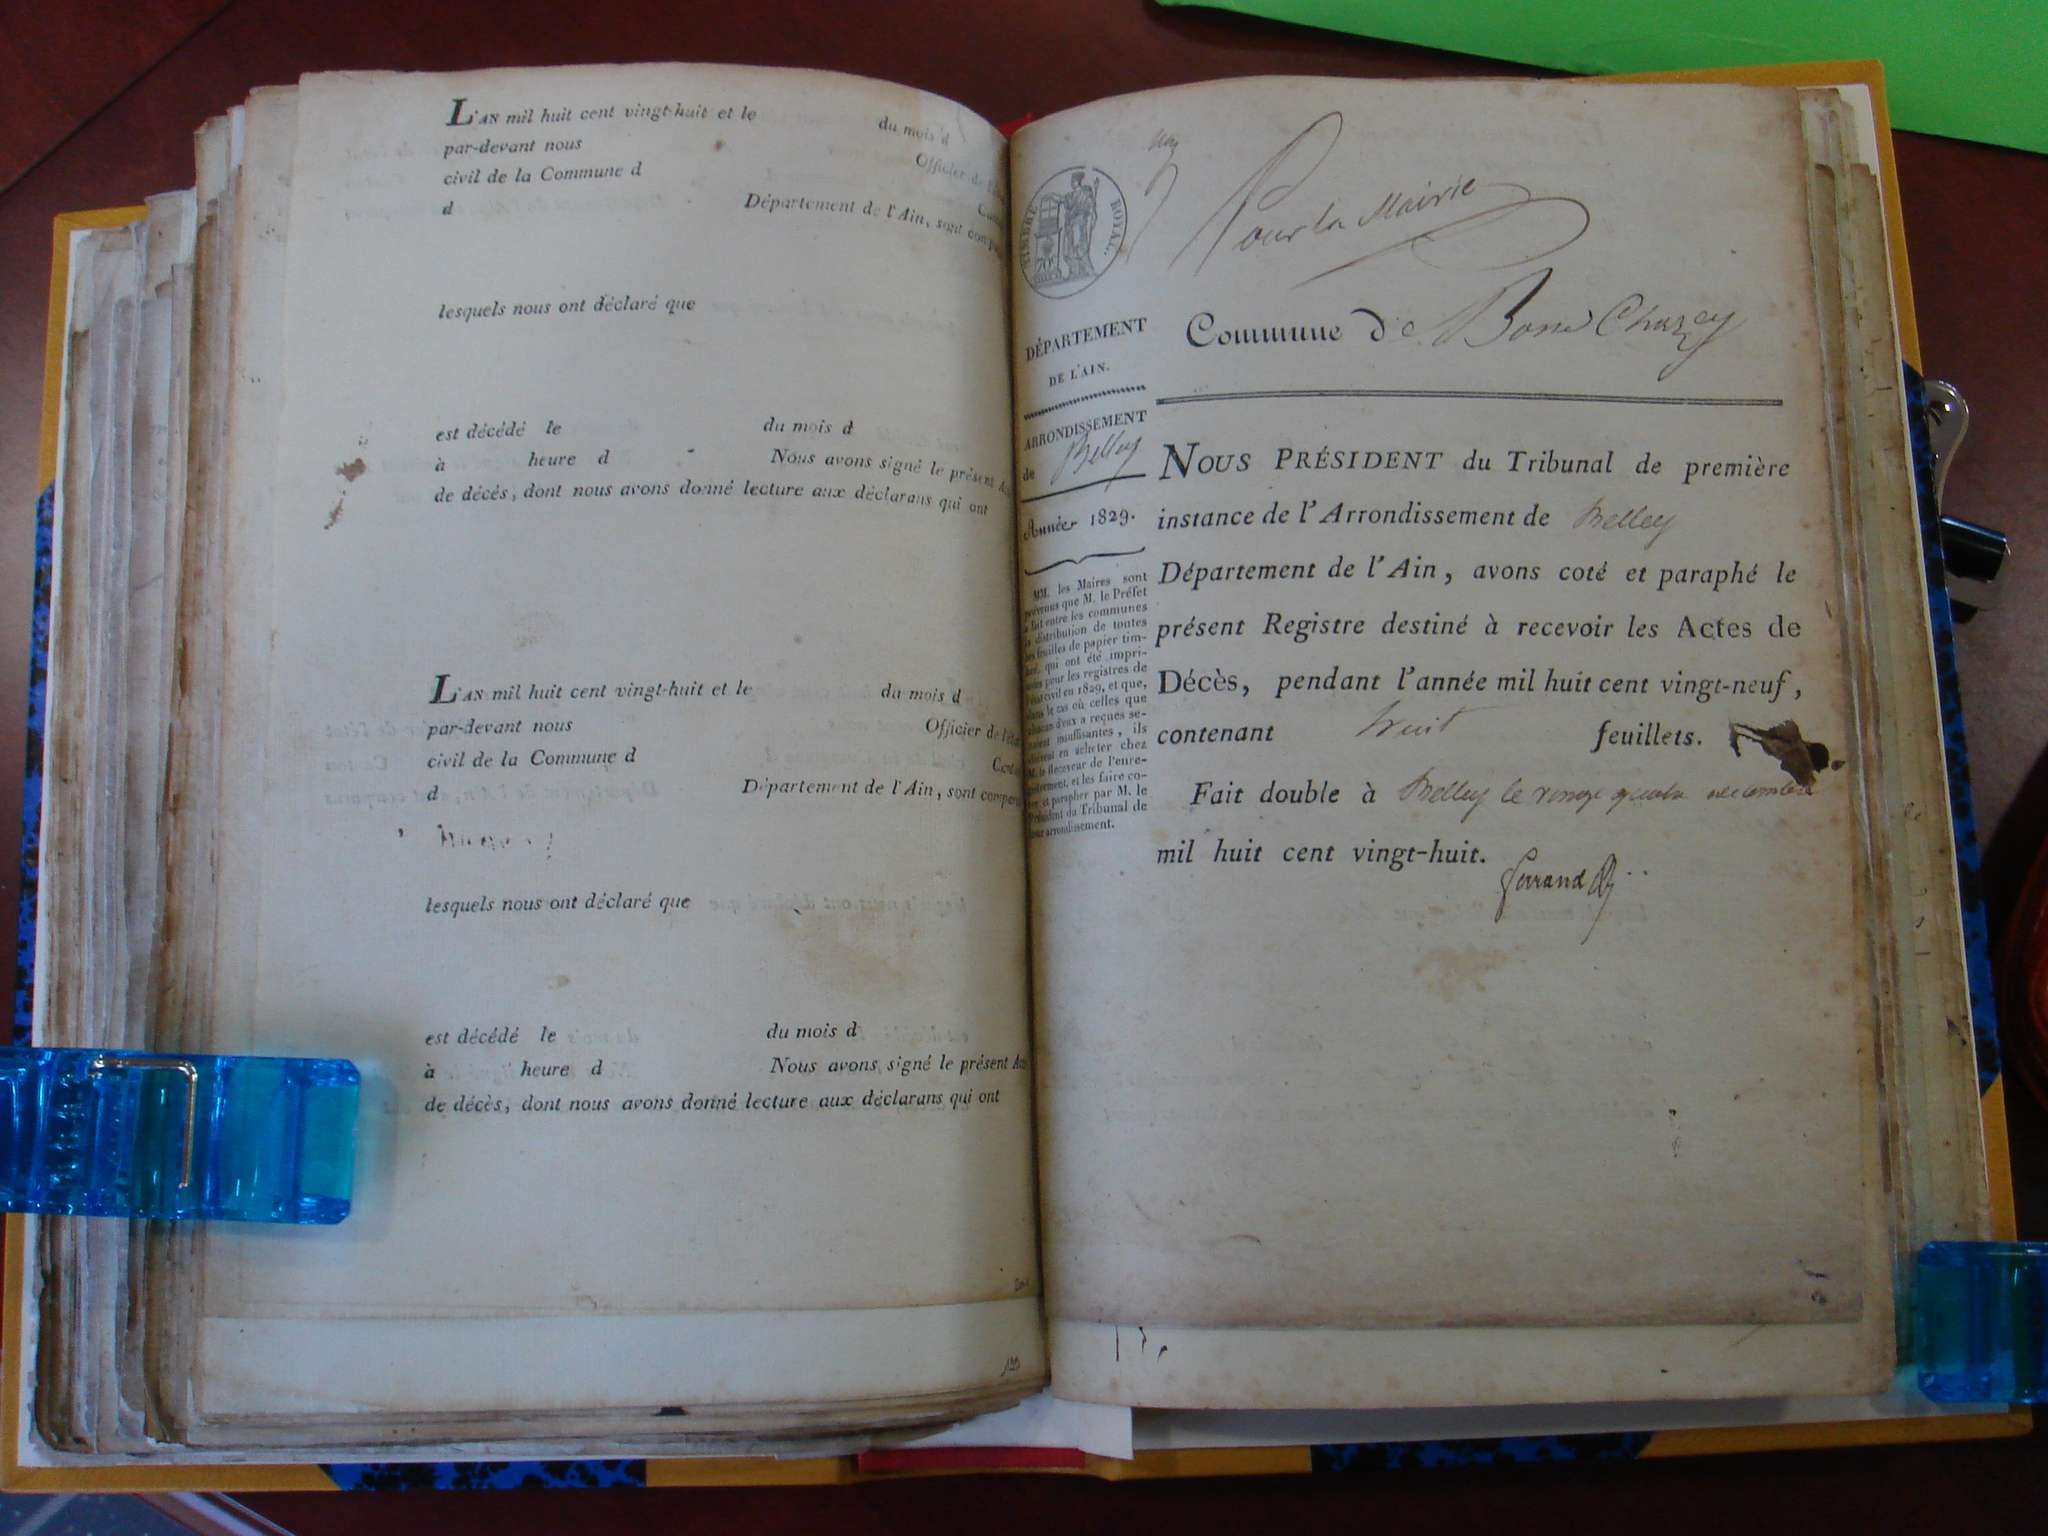 L'AN mil huit cent vingt-huit et le du mois d
par-devant nous Officier de l'état
civil de la Commune d
d Département de l'Ain, sont comp
lesquels nous ont déclaré que
est décédé le du mois d
à heure d Nous avons signé le présent A
de décès, dont nous avons donné lecture aux déclarans qui ont
L'AN mil huit cent vingt-huit et le du mois d
par-devant nous Officier de l'éta
civil de la Commune d Cant
d Département de l'Ain, sont compar
lesquels nous ont déclaré que
est décédé le du mois d
à heure d Nous avons signé le présent Ac
de décès, dont nous avons donné lecture aux déclarans qui ont
TIMBRE ROYAL.
70c
DÉPARTEMENT
DE L'AIN.
ARRONDISSEMENT
de Belley
Année 1829.
MM. les Maires sont
prévenus que M. le Préfet
a fait entre les communes
la distribution de toutes
les feuilles de papier tim-
bré, qui ont été impri-
mées pour les registres de
l'état civil en 1829, et que,
dans le cas où celles que
chacun d'eux a reçues se-
raient insuffisantes, ils
doivent en acheter chez
M. le Receveur de l'enre-
gistrement, et les faire co-
ter et parapher par M. le
Président du Tribunal de
leur arrondissement.
Pour la Mairie
Commune de Bons Chazey
NOUS PRÉSIDENT du Tribunal de première
instance de l'Arrondissement de Belley
Département de l'Ain, avons coté et paraphé le
présent Registre destiné à recevoir les Actes de
Décès, pendant l'année mil huit cent vingt-neuf,
contenant huit feuillets.
Fait double à Belley le vingt quatre décembre
mil huit cent vingt-huit.